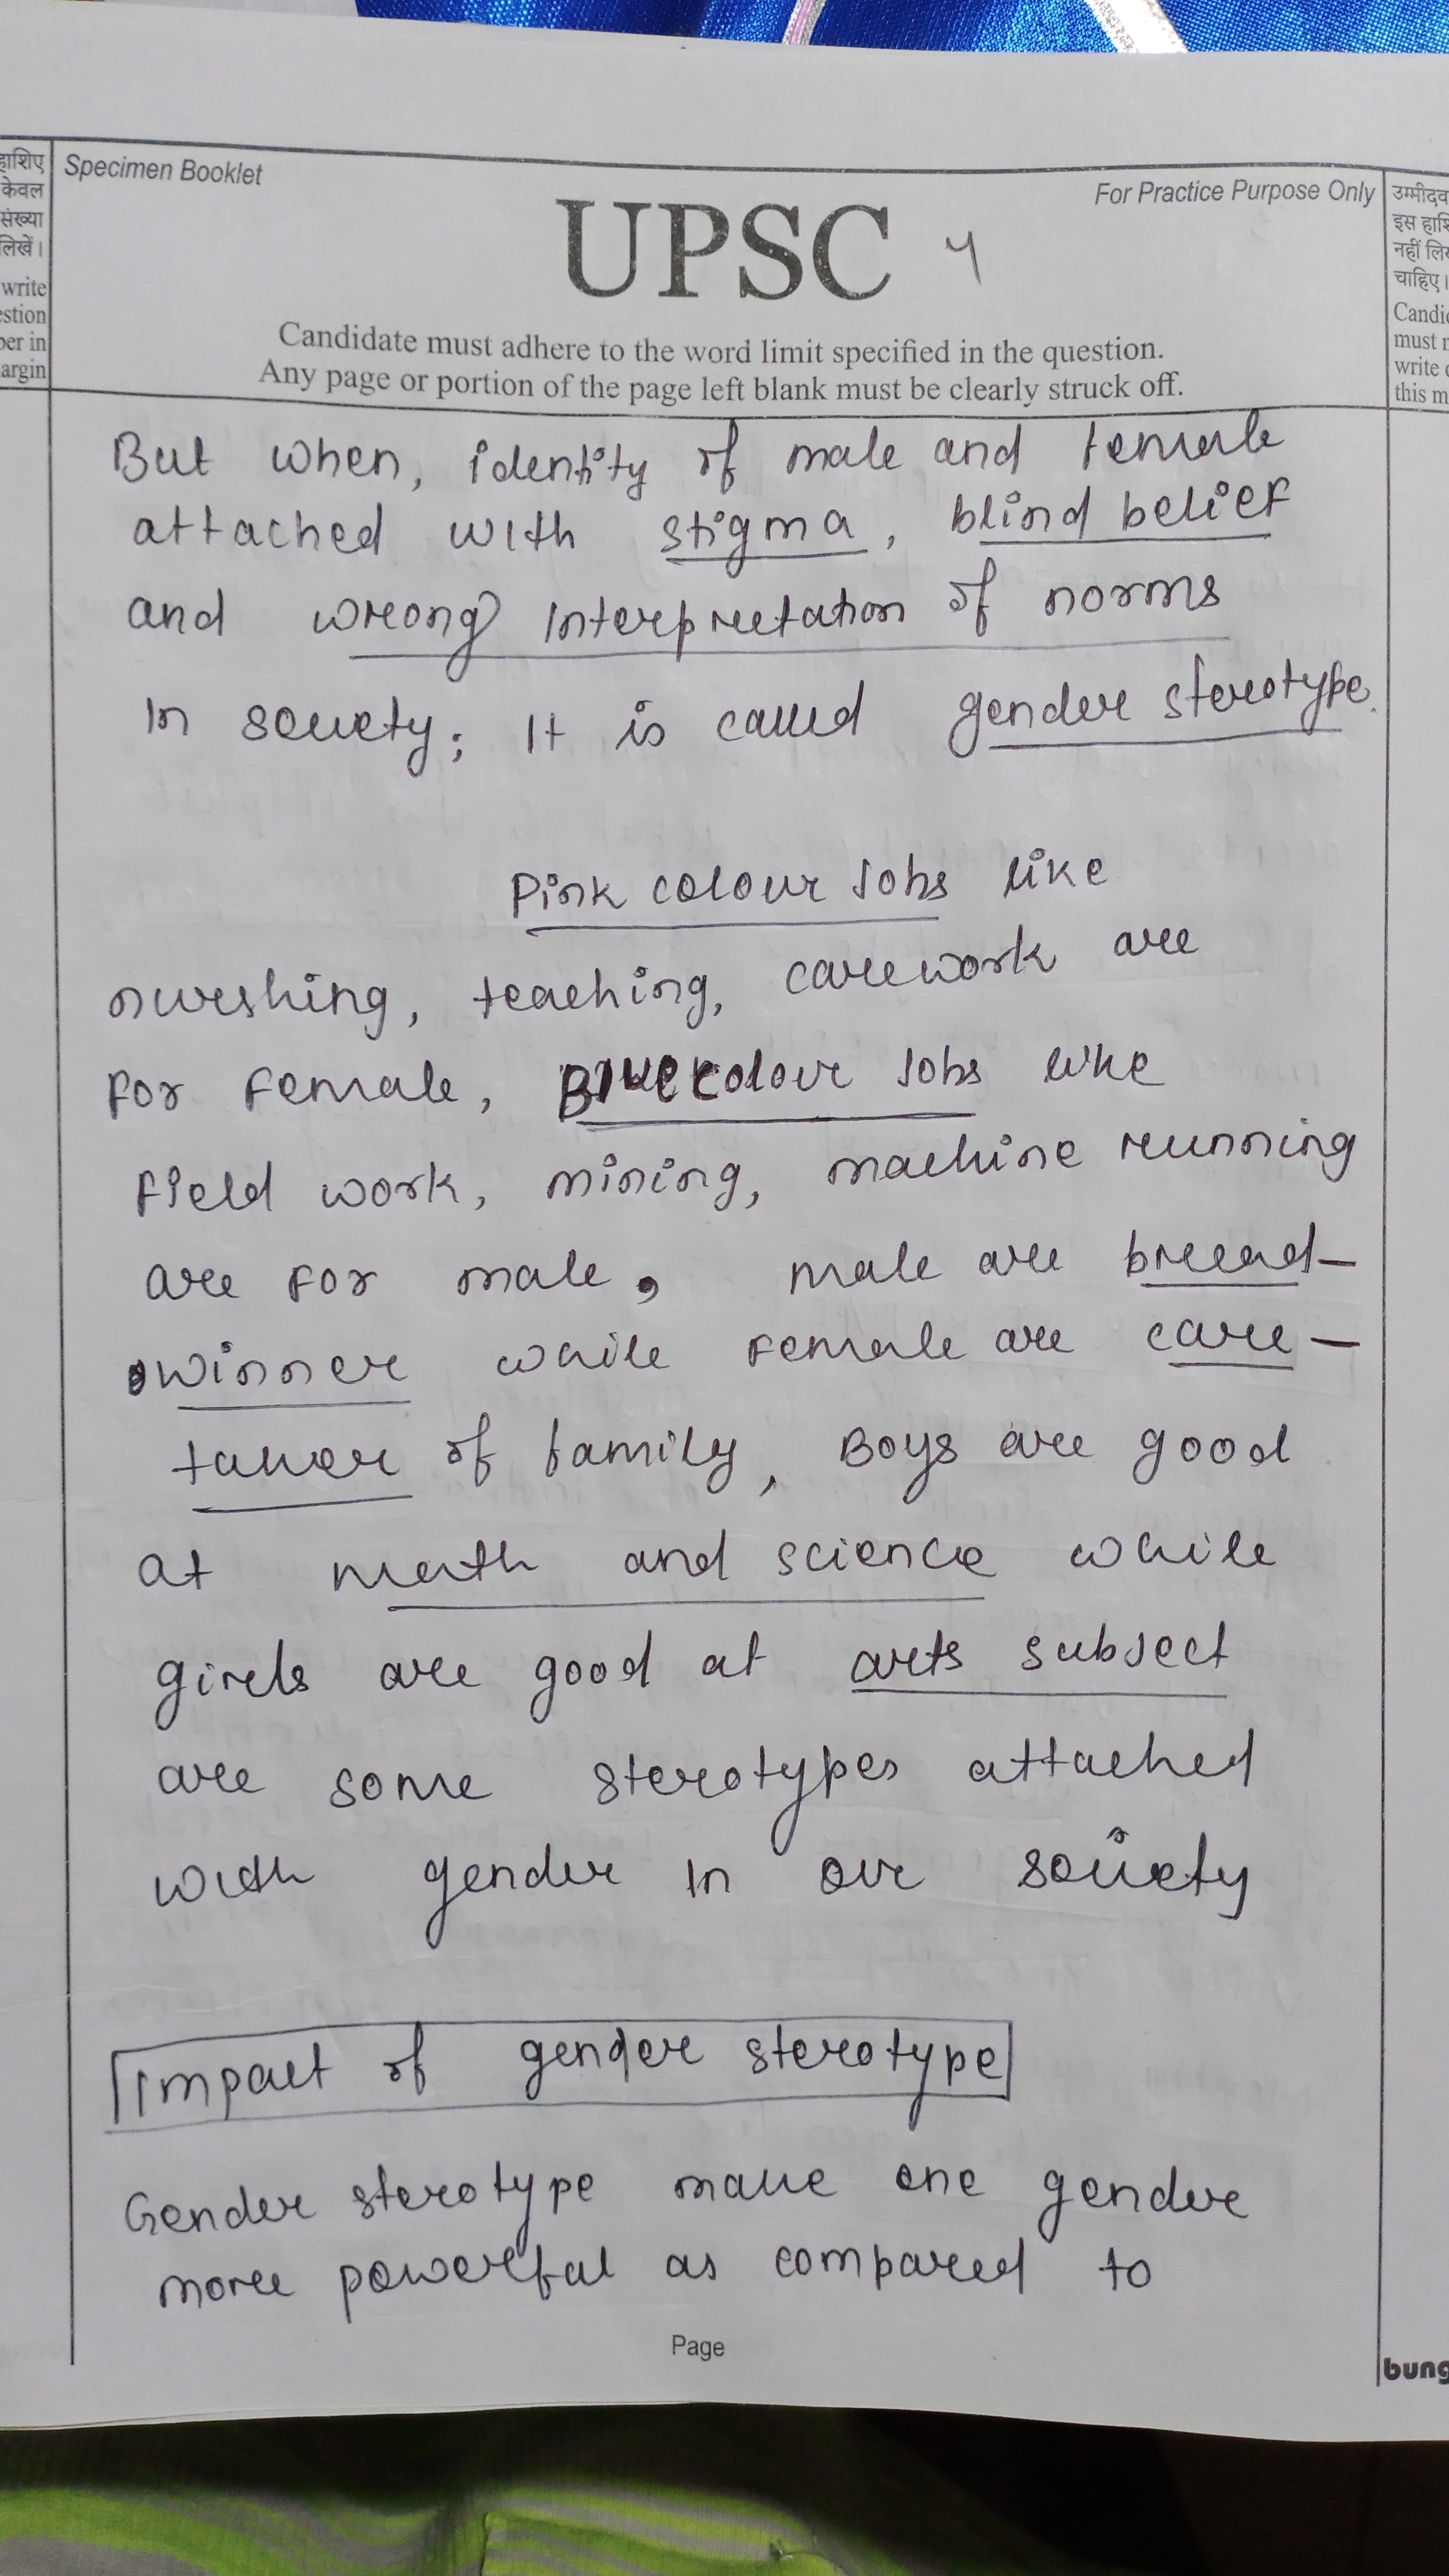 हाशिए
केवल
संख्या
लिखें।
write
estion
ber in
argin
Specimen Booklet
For Practice Purpose Only
UPSC 4
Candidate must adhere to the word limit specified in the question.
Any page or portion of the page left blank must be clearly struck off.
उम्मीदव
इस हाशि
नहीं लिख
चाहिए।
Candid
must n
write o
this m
But when, identity of male and female
attached with stigma, blind belief
and wrong interpretation of norms
in society; it is called gender sterotype.
Pink colour Jobs like
nurshing, teaching, carework are
for female, Blue colour Jobs like
field work, mining, machine running
are for male, male are bread-
winner while female are care-
taker of family, Boys are good
at math and science while
girls are good at arts subject
are some sterotypes attached
with gender in our society
Impact of gender sterotype
Gender sterotype make one gender
more powerful as compared to
Page
bung